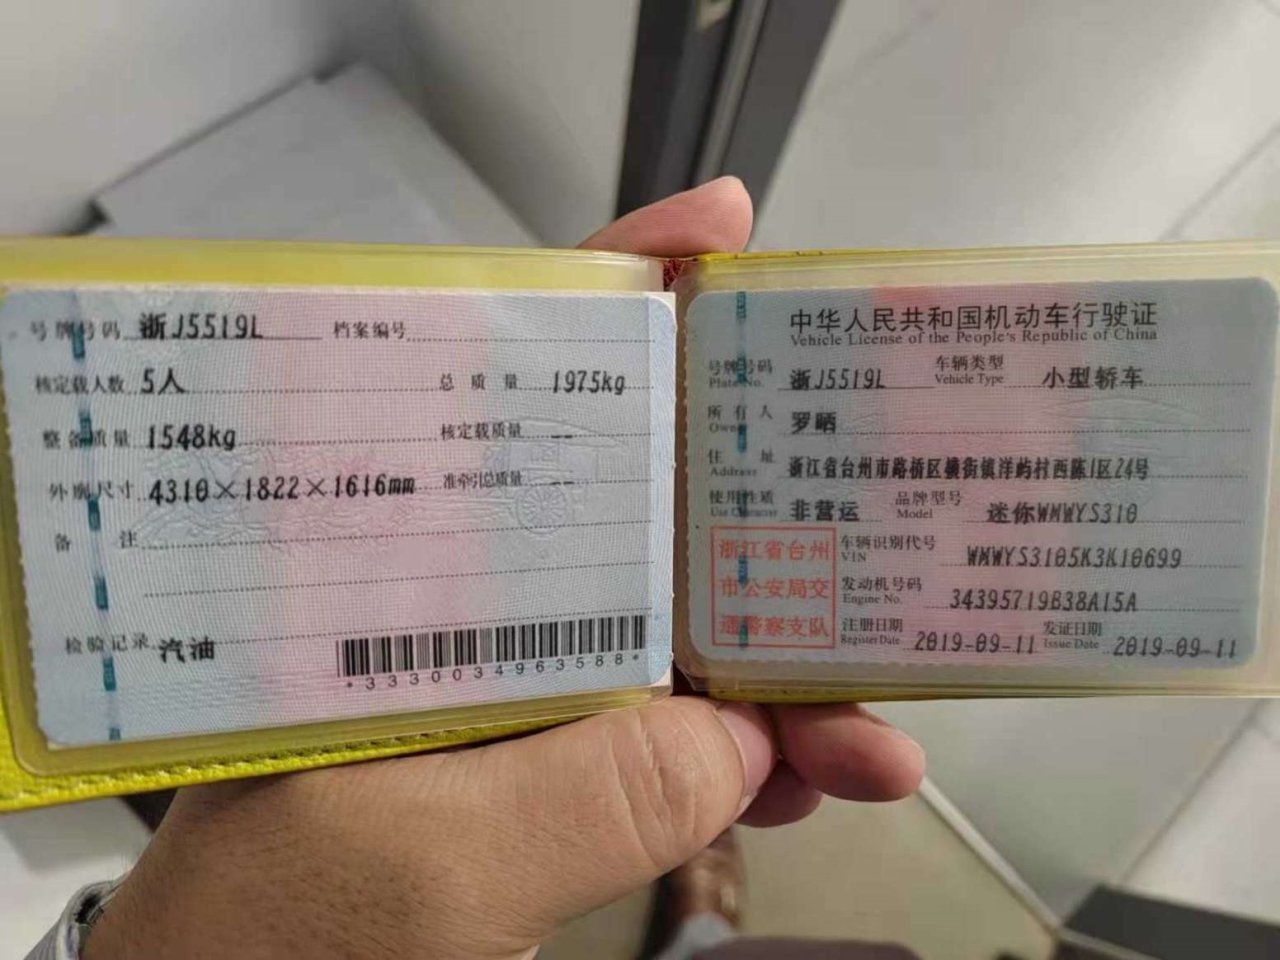 号牌号码 浙J5519L 档案编号
核定载人数 5人 总质量 1975kg
整备质量 1548kg 核定载质量 --
外廓尺寸 4310×1822×1616mm 准牵引总质量 --
备注
检验记录 汽油
*3330034963588*
中华人民共和国机动车行驶证
Vehicle License of the People's Republic of China
号牌号码 浙J5519L 车辆类型 小型轿车
Plate No. Vehicle Type
所有人 罗晒
Owner
住址 浙江省台州市路桥区横街镇洋屿村西陈1区24号
Address
使用性质 非营运 品牌型号 迷你WMWYS310
Use Character Model
浙江省台州
市公安局交
通警察支队
车辆识别代号 WMWYS3105K3K10699
VIN
发动机号码 34395719B38A15A
Engine No.
注册日期 2019-09-11 发证日期 2019-09-11
Register Date Issue Date